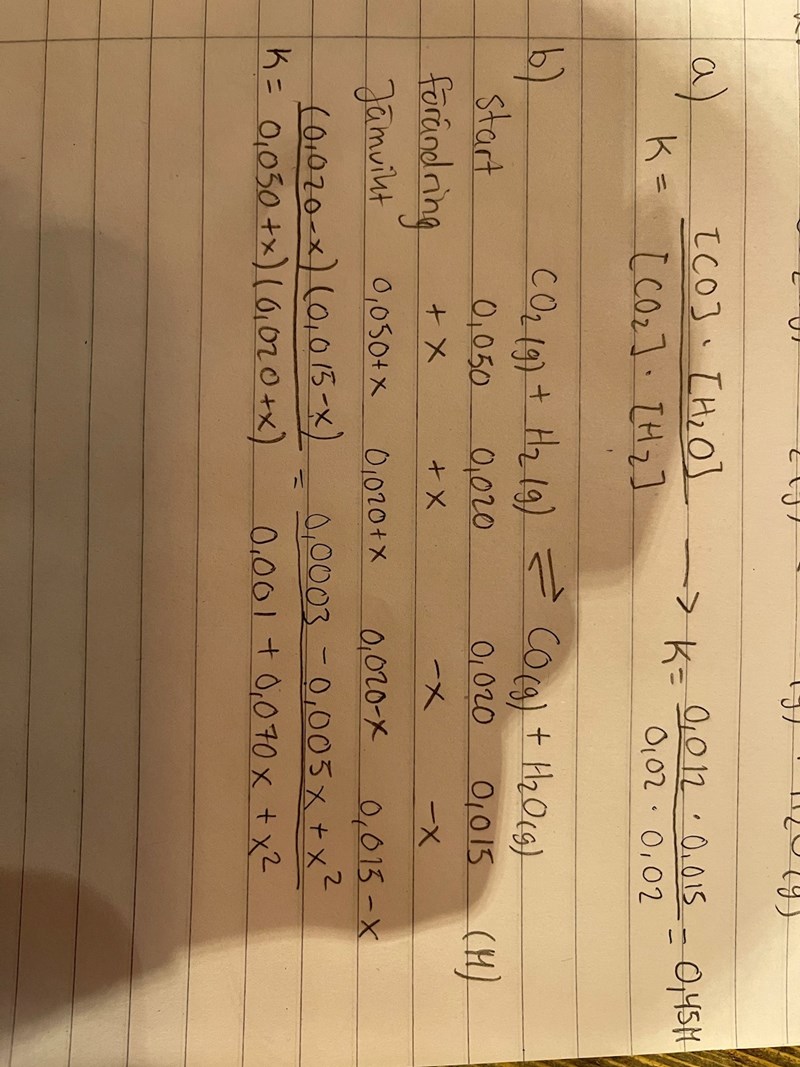 a) K = [CO] · [H₂O] / [CO₂] · [H₂] → K = 0,012 · 0,015 / 0,02 · 0,02 = 0,45M
b) CO₂(g) + H₂(g) ⇌ CO(g) + H₂O(g)
start 0,050 0,020 0,020 0,015 (M)
förändring +x +x -x -x
Jämvikt 0,050+x 0,020+x 0,020-x 0,015-x
K = (0,020-x)(0,015-x) / 0,050+x)(0,020+x) = 0,0003 - 0,005x + x² / 0,001 + 0,070x + x²